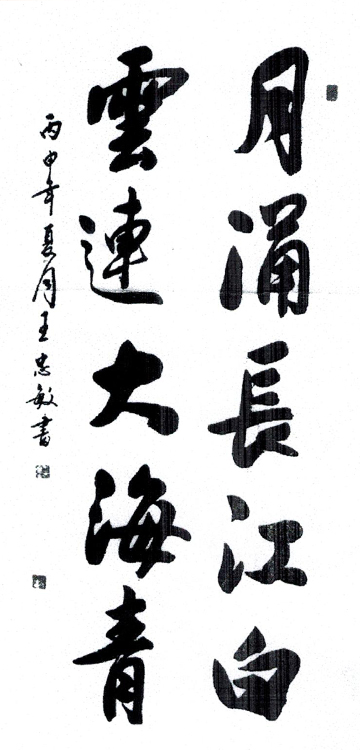 月涌長江白
雲連大海青
丙申年夏月王忠敏書